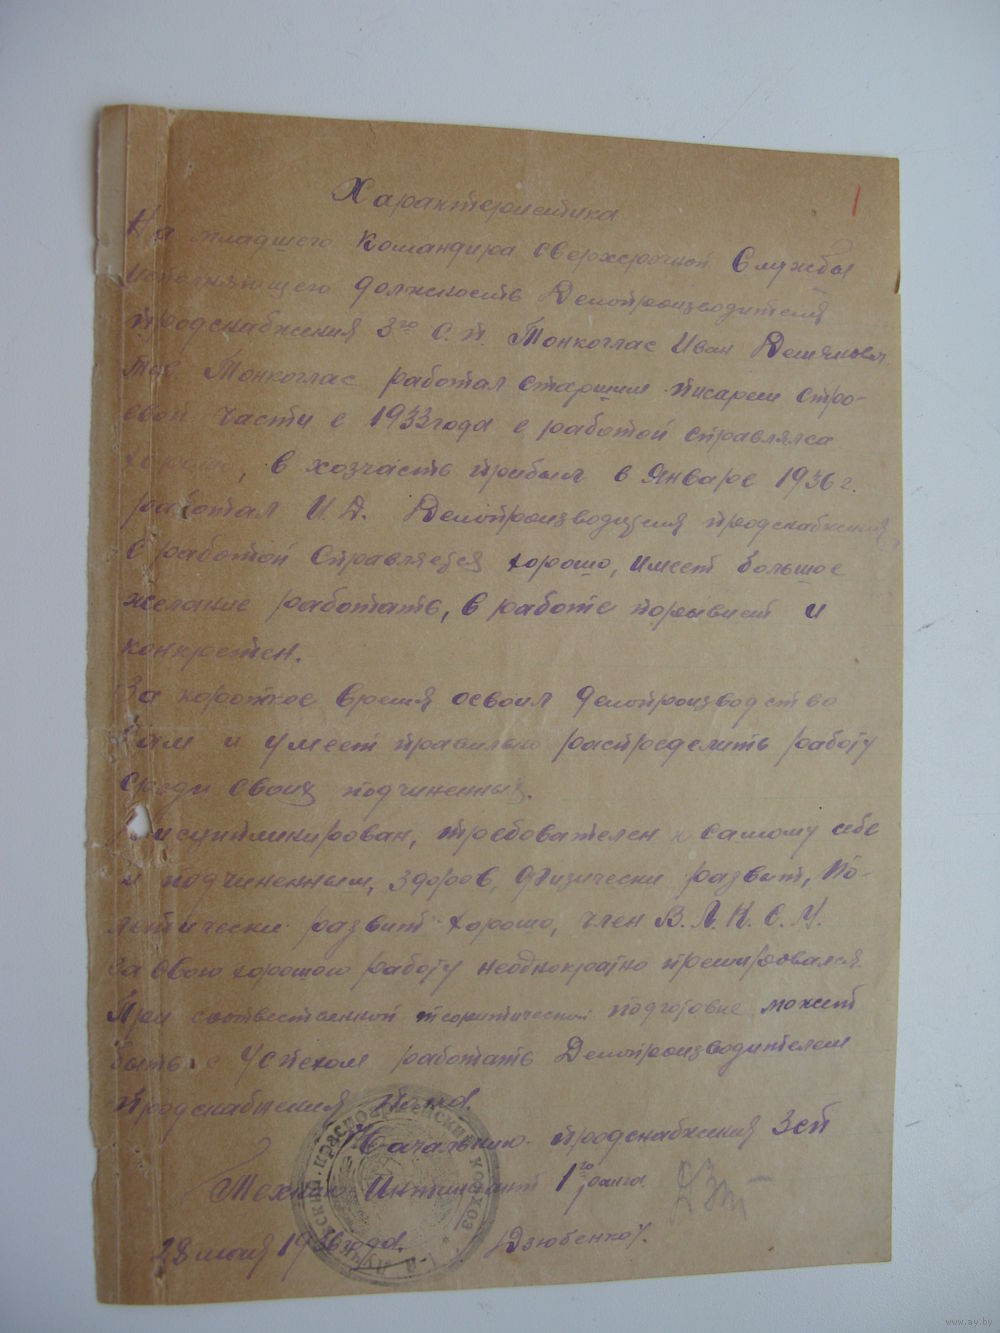 1
Характеристика
На младшего Командира сверхсрочной Службы
исполняющего должность Делопроизводителя
продснабжения 3го С.П. Тонкоглас Иван
тов. Тонкоглас работал старшим писарем стро-
евой части с 1933 года с работой справлялся
хорошо, в хозчасть прибыл в Январе 1936 г.
работал И.Д. Делопроизводителя продснабжения,
С работой Справляется хорошо, имеет большое
желание работать, в работе порывист и
конкретен.
За короткое время освоил делопроизводство
Сам и умеет правильно распределить работу
среди своих подчиненных.
Дисциплинирован, требователен к самому себе
и подчиненным, здоров, физически развит, По-
литически развит хорошо, член В.Л.К.С.М.
за свою хорошою работу неоднократно премировался.
При соотвественной теоритической подготовке может
быть с Успехом работать Делопроизводителем
продснабжения полка.
Начальник продснабжения 3сп
Техник Интендант 1го ранга.
28 мая 1936 года. Дзюбенко
www.ay.by